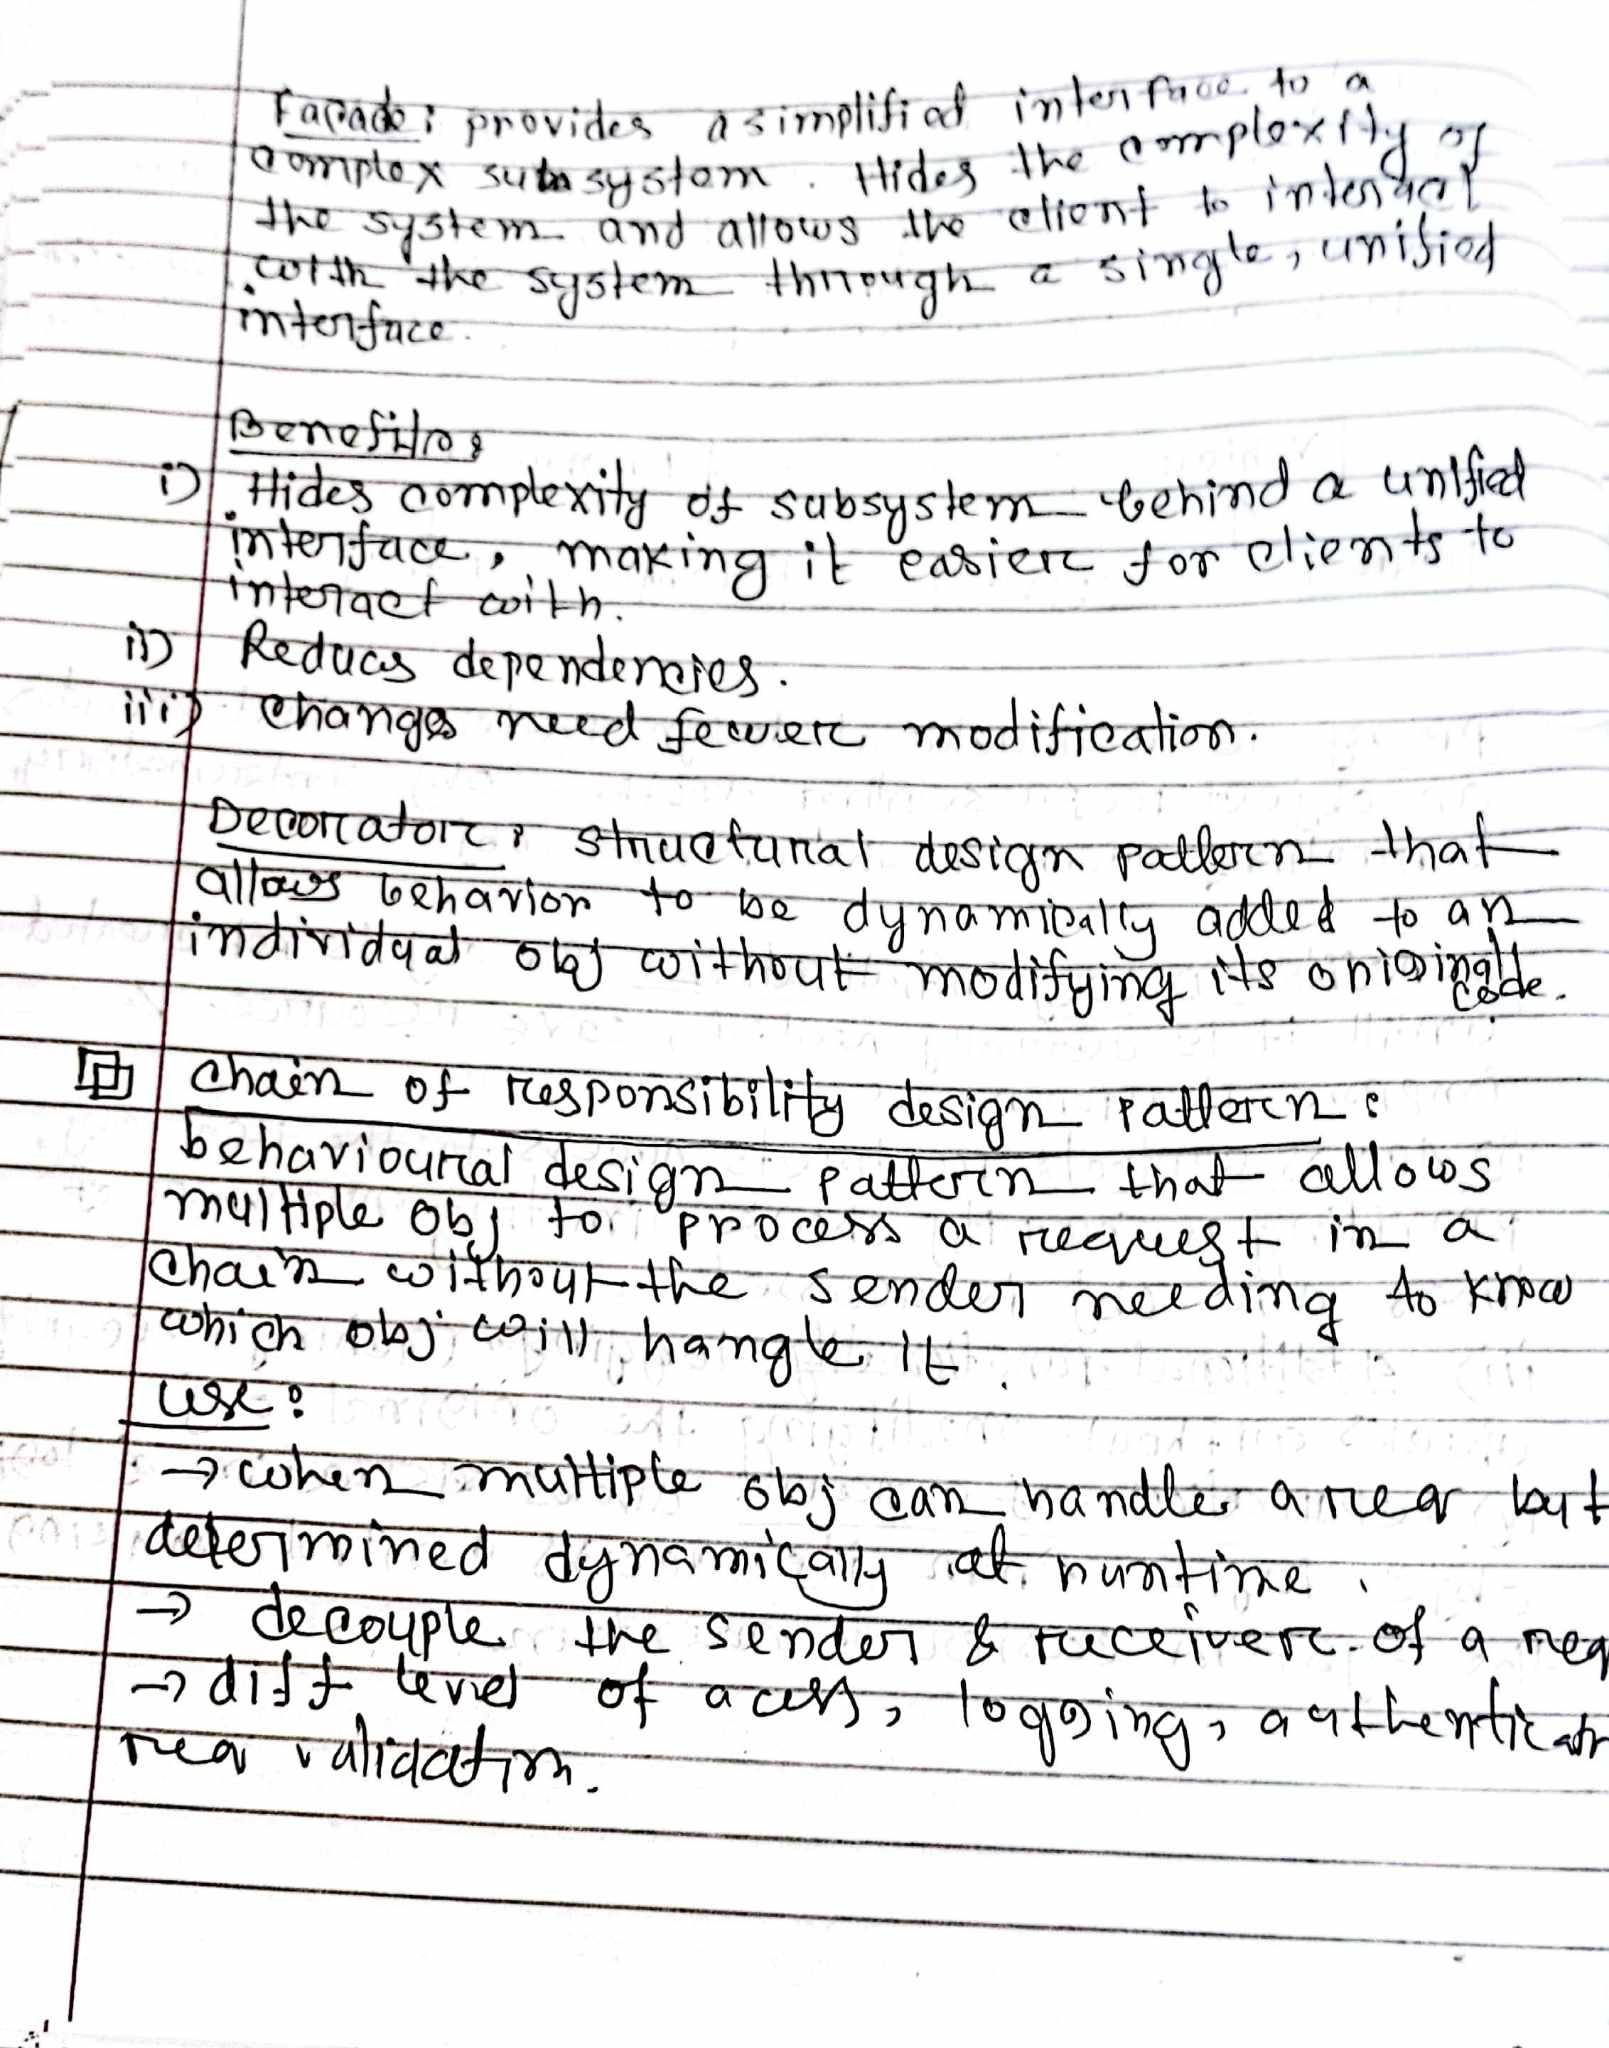 Facade: provides a simplified interface to a
complex subsystem. Hides the complexity of
the system and allows the client to interact
with the system through a single, unified
interface.
Benefits:
i) Hides complexity of subsystem behind a unified
interface, making it easier for clients to
interact with.
ii) Reduces dependencies.
iii) changes need fewer modification.
Decorator: structural design pattern that
allows behavior to be dynamically added to an
individual obj without modifying its original
code.
Chain of responsibility design pattern:
behavioural design pattern that allows
multiple obj to process a request in a
chain without the sender needing to know
which obj will hangle it.
use:
→ when multiple obj can handle a req but
determined dynamically at runtime.
→ decouple the sender & receiver of a req
→ diff level of acess, logging, authenticatn
req validation.